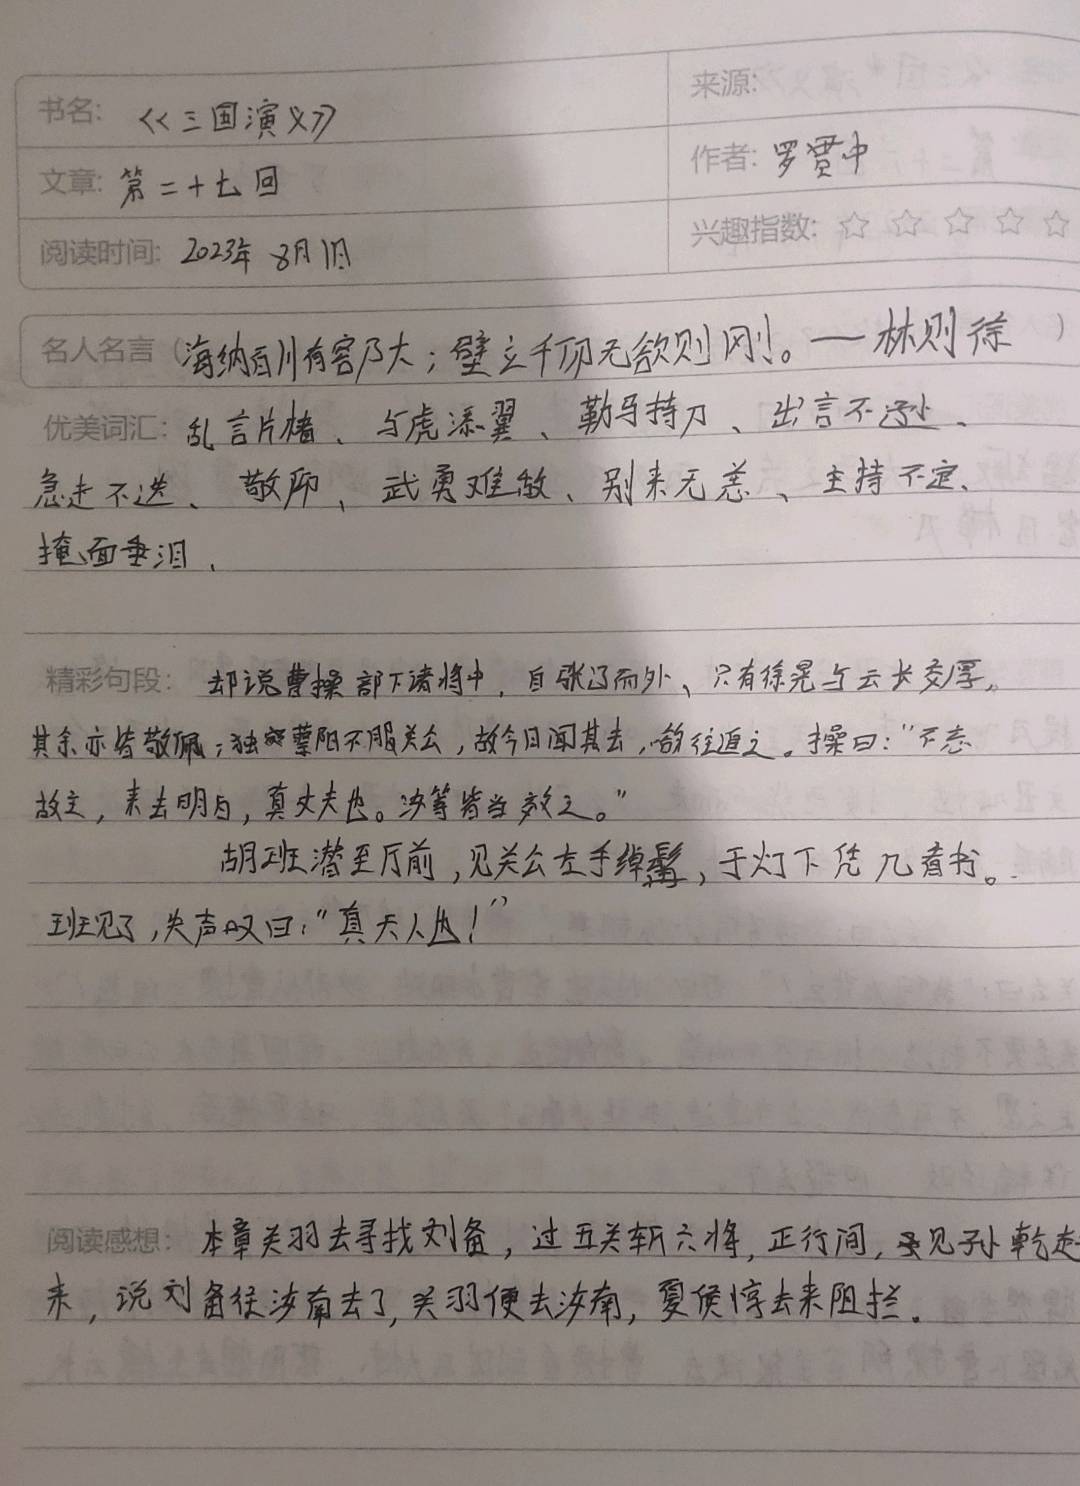 书名: 《三国演义》
来源:
文章: 第二十七回
作者: 罗贯中
阅读时间: 2023年8月1日
兴趣指数: ☆ ☆ ☆ ☆ ☆
名人名言（海纳百川有容乃大；壁立千仞无欲则刚。——林则徐）
优美词汇: 乱言片楮、与虎添翼、勒马持刀、出言不逊、
急走不迭、敬仰、武勇难敌、别来无恙、主持不定、
掩面垂泪、
精彩句段: 却说曹操部下诸将中，自张辽而外、只有徐晃与云长交厚。
其余亦皆敬佩；独蔡阳不服关公，故今日闻其去，欲往追之。操曰：“不忘
故主，来去明白，真丈夫也。汝等皆当效之。”
胡班潜至厅前，见关公左手绰髯，于灯下凭几看书。
班见了，失声叹曰：“真天人也！”
阅读感想: 本章关羽去寻找刘备，过五关斩六将，正行间，见孙乾赶
来，说刘备往汝南去了，关羽便去汝南，夏侯惇去来阻拦。